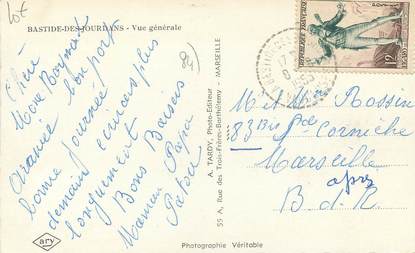 10€
BASTIDE-DES-JOURDANS - Vue générale
Chère
Mme
Arrivée bon port
bonne journée
demain écrirais plus
longuement
Bons Baisers
Maman Papa
(84)
A. TARDY, Photo-Editeur
55 A, Rue des Trois-Frères-Barthélemy - MARSEILLE
REPUBLIQUE FRANÇAISE
12F
POSTES
M et Mme Rossin
83 Bis Pce Corniche
Marseille
B d. R
ary
Photographie Véritable